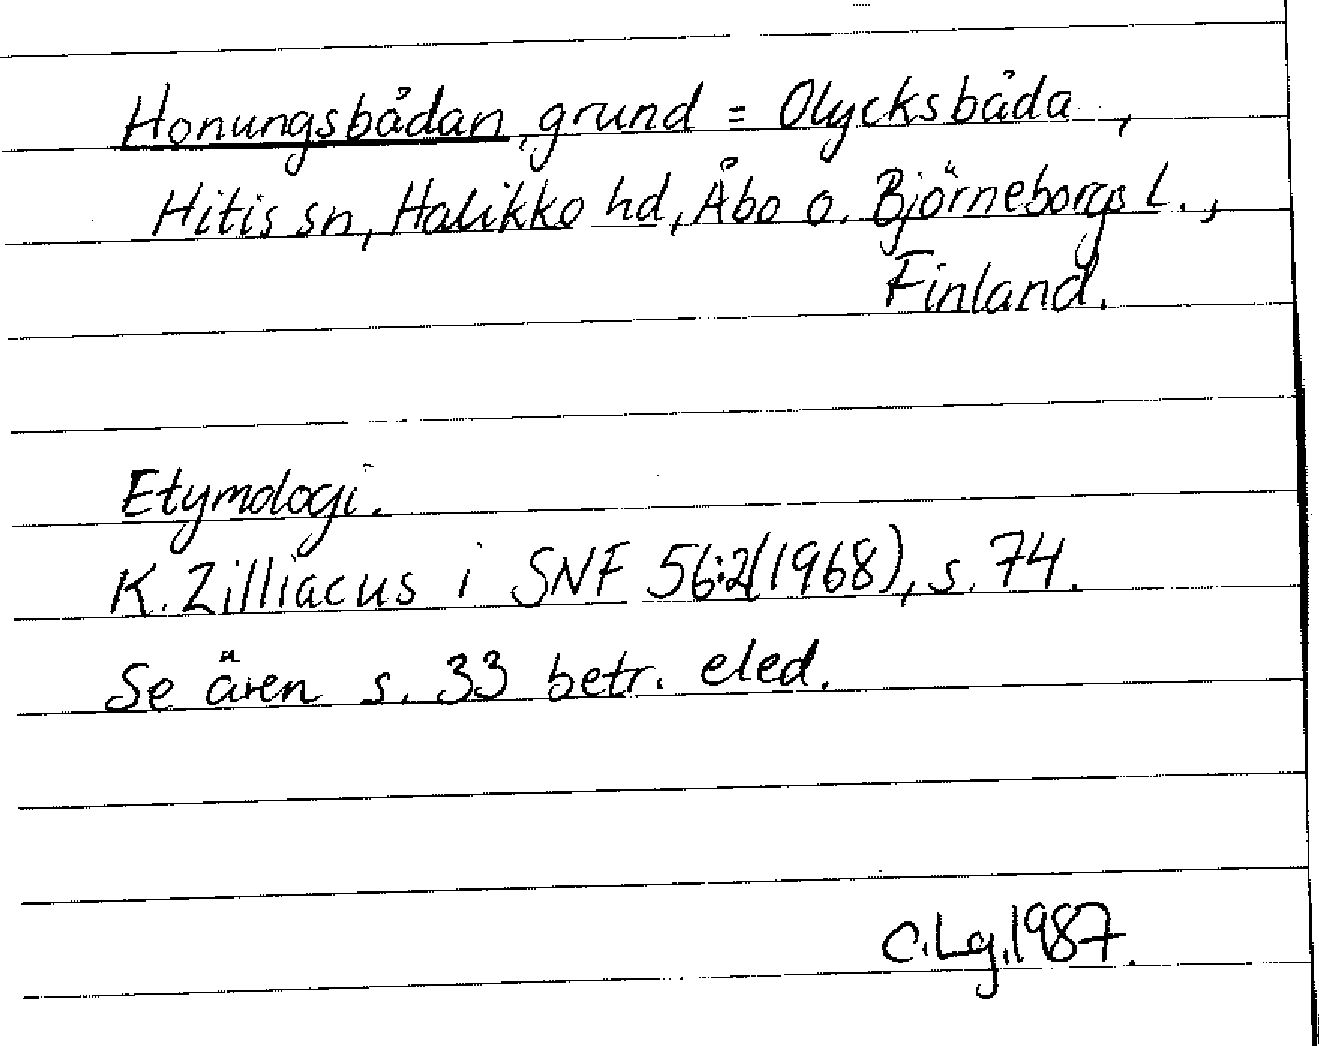 Honungsbådan, grund = Olycksbåda,
Hitis sn, Halikko hd, Åbo o. Björneborgs L.,
Finland.
Etymologi.
K. Zilliacus i SNF 56:2(1968), s. 74.
Se även s. 33 betr. eled.
C.Lg.1987.